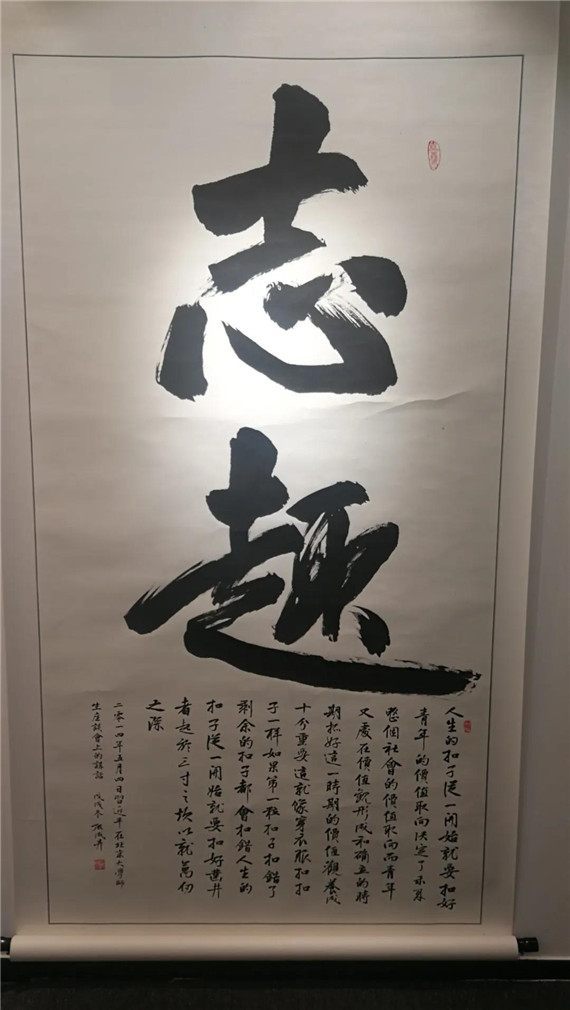 志趣
人生的扣子從一開始就要扣好
青年的價值取向決定了未來
整個社會的價值取向而青年
又處在價值觀形成和確立的時
期抓好這一時期的價值觀養成
十分重要這就像穿衣服扣扣
子一樣如果第一粒扣子扣錯了
剩余的扣子都會扣錯人生的
扣子從一開始就要扣好凿井
者起於三寸之坎以就萬仞
之深
二零一四年五月四日習近平在北京大學師
生座談會上的講話 戊戌冬